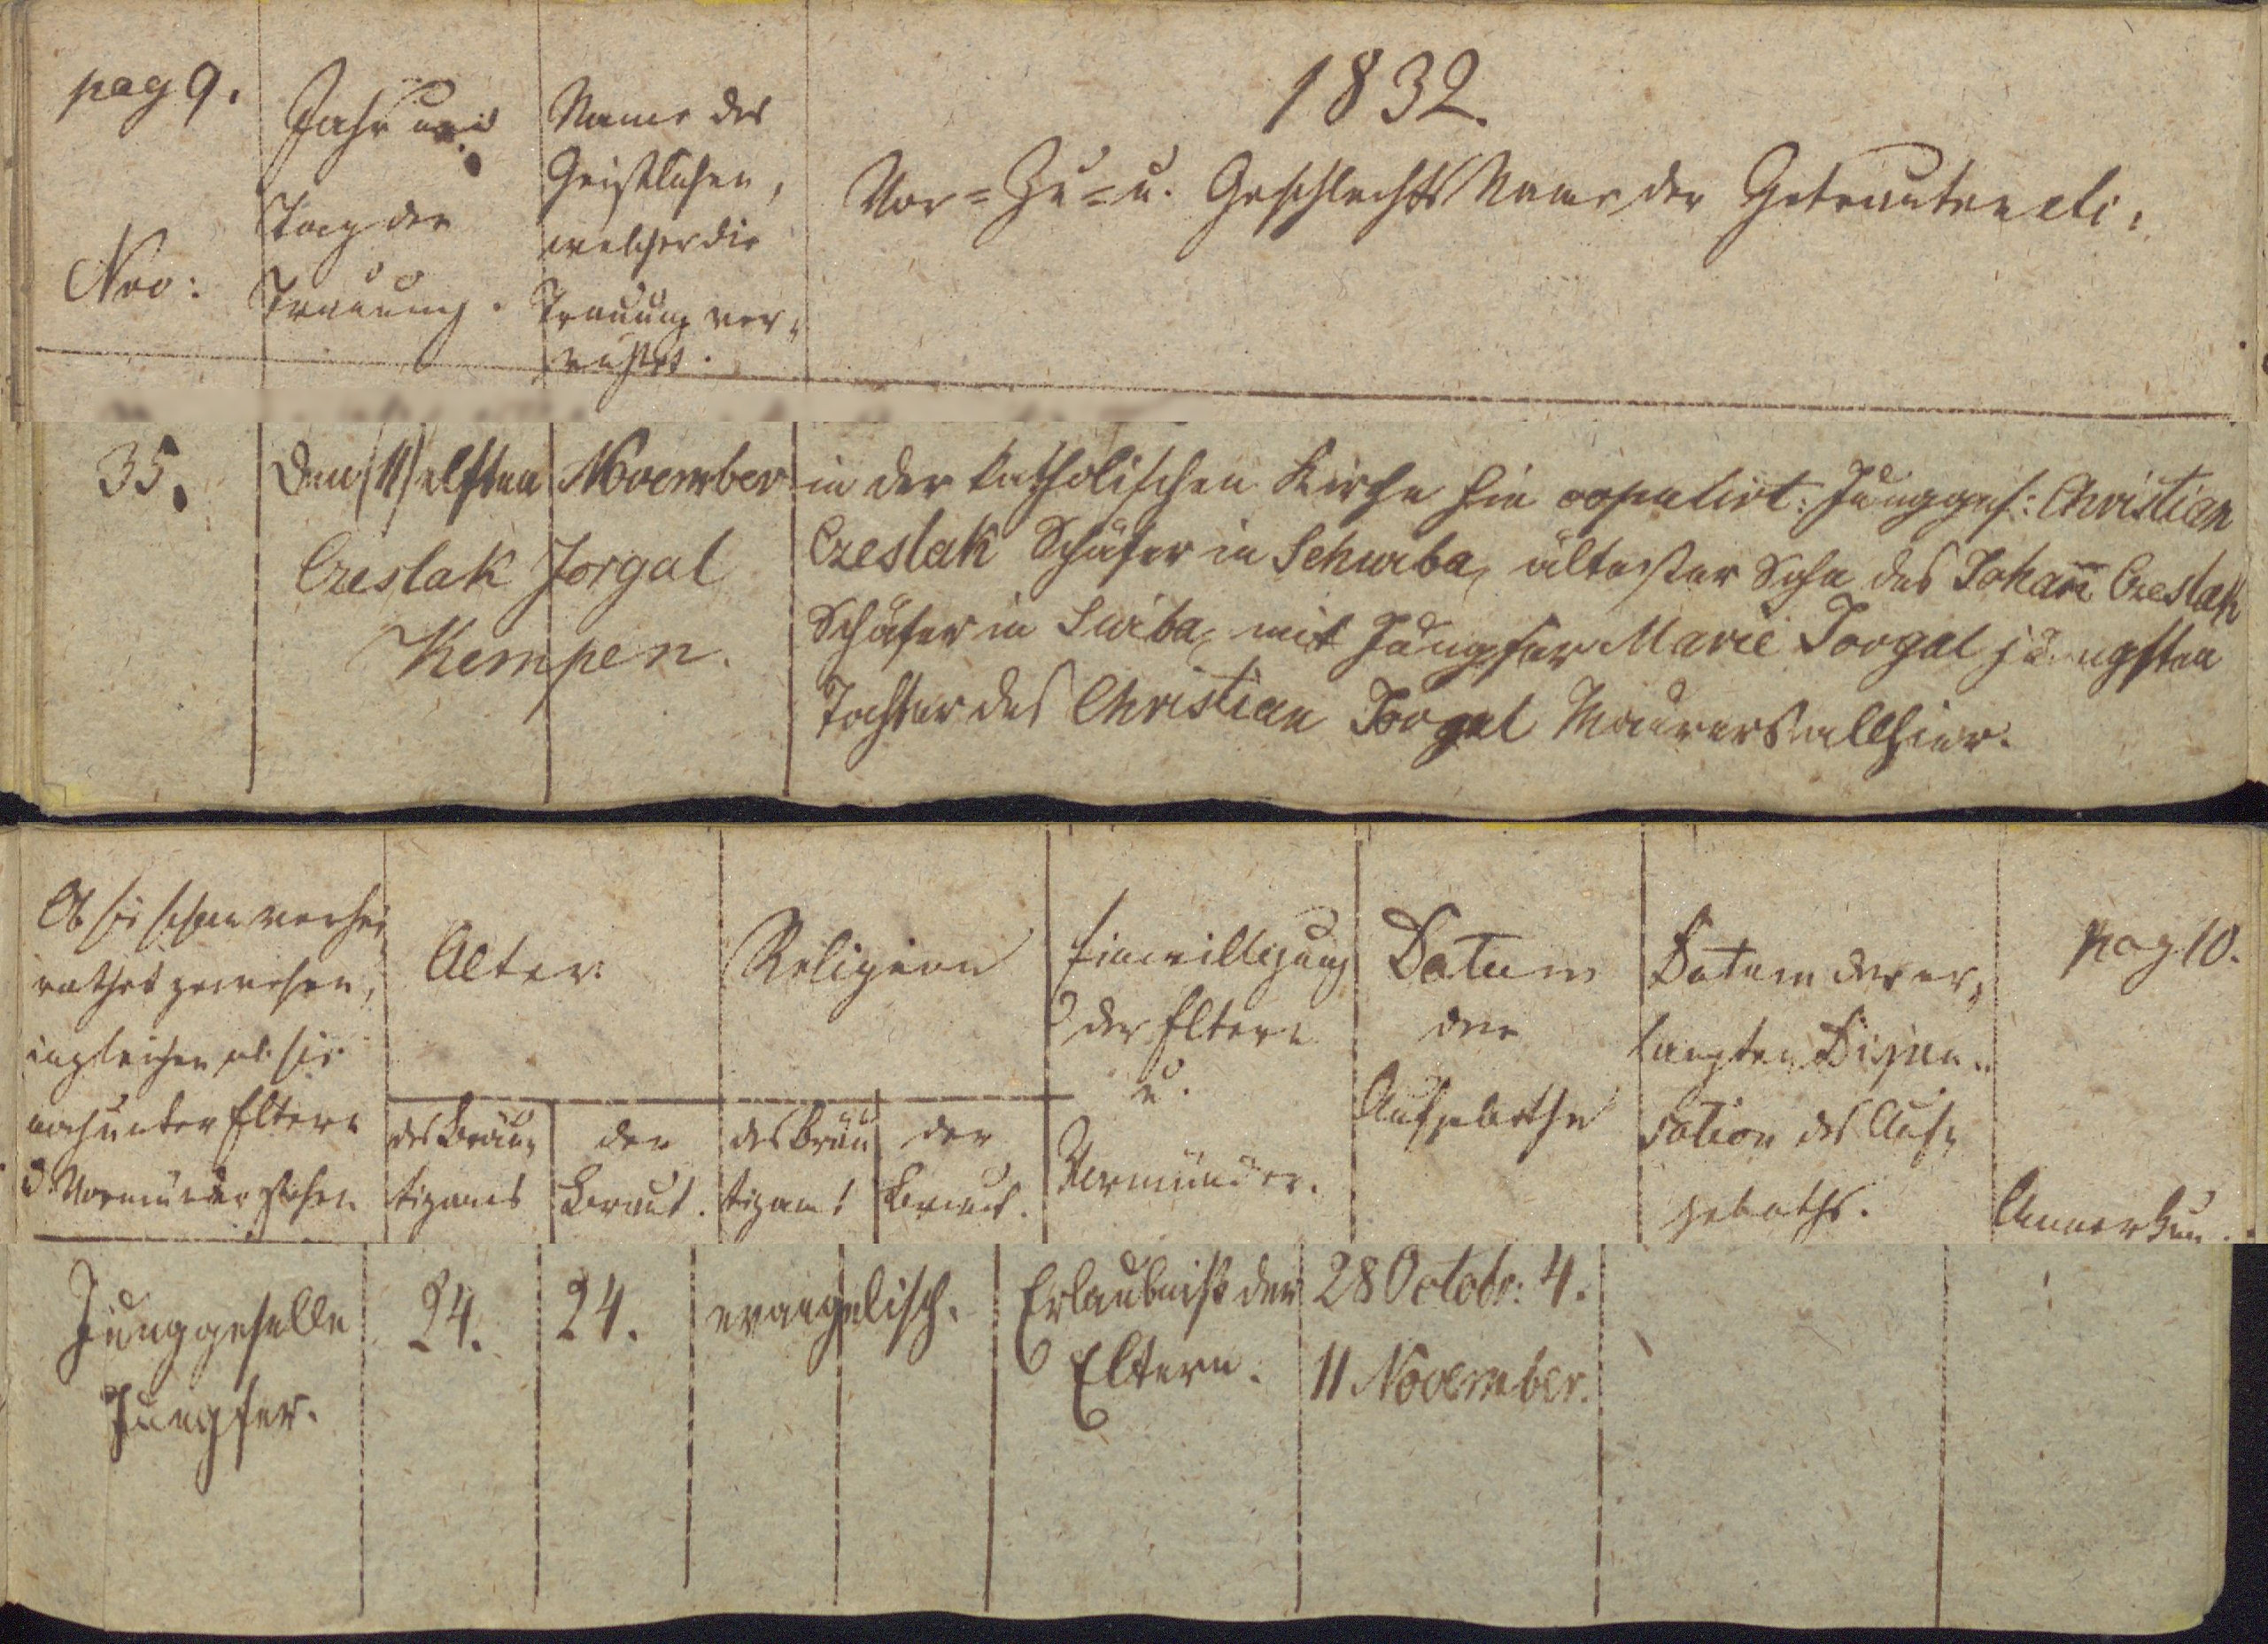 pag 9.
Nro:
Jahr und
Tag der
Trauung.
Name des
Geistlichen,
welcher die
Trauung ver-
richtet.
1832.
Vor= Zu= u. Geschlechts Name der Getrauten etc:
35.
Den (11) elften November
Czeslak Jorgal
Kempen.
in der katholischen Kirche hier copulirt: Junggs: Christian
Czeslak Schäfer in Schwiba, ältester Sohn des Johañ Czeslak
Schäfer in Swiba, mit Jungfer Marie Jorgal jüngsten
Tochter des Christian Jorgal Maurers allhier.
Ob sie schon verhei
rathet gewesen,
ingleichen ob sie
noch unter Eltern
o Vormünder stehen
Alter
des Bräu-
tigams
der
Braut.
Religion
des Bräu
tigams
der
Braut.
Einwilligung
der Eltern
u.
Vormünder.
Datum
der
Aufgebothe
Datum der er-
langten Dispen-
sation des Auf-
geboths.
pag 10.
Anmerkun.
Junggeselle
Jungfer.
24.
24.
evangelisch.
Erlaubniß der
Eltern.
28 Octobr: 4.
11 November.